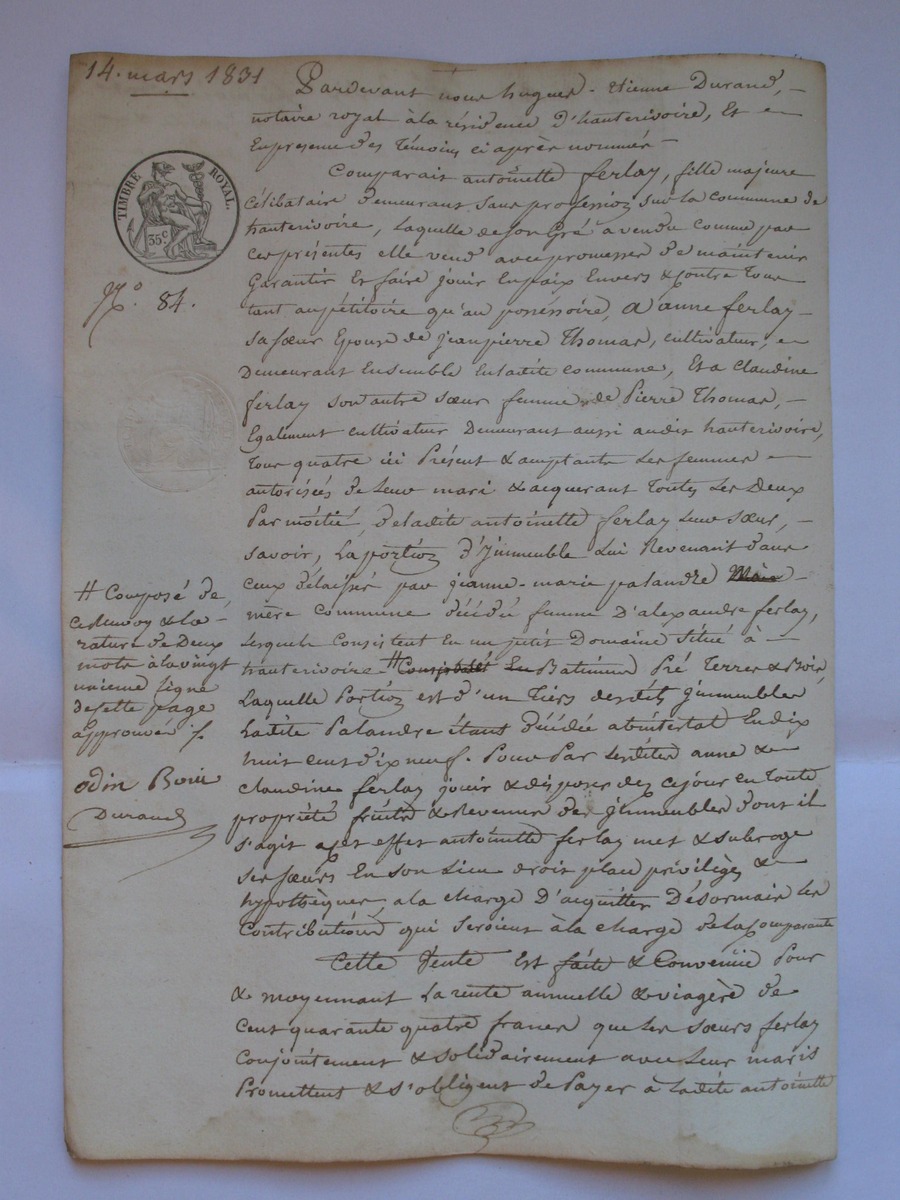 14. mars 1831
Pardevant nous hugues-Etienne Durand,
notaire royal à la résidence d'hauterivoire, Et
En presence des Témoins ci après nommés
Comparait antoinette ferlay, fille majeure
Célibataire demeurant sans profession sur la commune de
hauterivoire, Laquelle de son Gré a vendu comme par
Ces présentes elle vend avec promesse de maintenir
Garantir Et faire jouir En paix Envers & contre Tous
tant au pétitoire qu'au posséssoire, a anne ferlay
sa sœur Epouse de jeanpierre Thomas, cultivateur,
Demeurant Ensemble En ladite commune, Et a Claudine
ferlay son autre sœur femme de Pierre Thomas,
Egalement cultivateur Demeurant aussi audit hauterivoire,
Tous quatre ici Présent & acceptants Les femmes
autorisées de Leur mari & acquerant Toutes Les Deux
Par moitié, de ladite antoinette ferlay Leur sœur,
savoir, La portion d'jmmeuble Lui Revenant dans
ceux délaissés par jeanne-marie palandre
mère commune décédée femme D'alexandre ferlay,
Lesquels Consistent En un petit Domaine situé à
hauterivoire # Batimens Pré Terres & Bois,
Laquelle Portion est d'un Tiers desdits jmmeubles
Ladite Palandre étant décédée abintestat En dix
huit cent dix neuf. Pour Par Lesdites anne &
claudine ferlay jouir & disposer dez ce jour en Toute
propriété fruits & Revenus des jmmeubles dont il
s'agit a cet effet antoinette ferlay met & subroge
ses sœurs En son Lieu droit place privilèges &
hypothèques, a la charge D'acquitter Désormais les
Contributions qui seroient à la charge de la Comparante
Cette Vente Est faite & Convenüe Pour
& moyennant La rente annuelle & viagère de
Cent quarante quatre francs que Les sœurs ferlay
Conjointement & solidairement avec Leur maris
Promettent & s'obligent de Payer à Ladite antoinette
TIMBRE ROYAL.
35c
No. 84.
# Composé de
ce Renvoy & la
rature de Deux
mots à la vingt
unieme ligne
de cette page
approuvés
odin
Durand